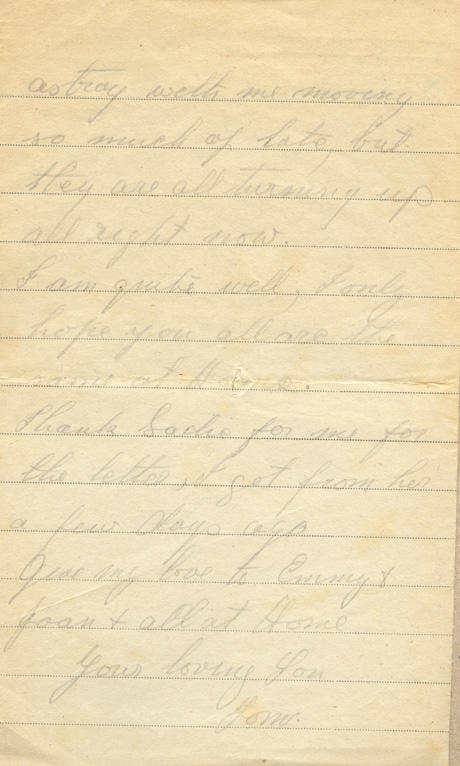 astray with me moving
so much of late, but
they are all turning up
all right now.
I am quite well, I only
hope you all are the
same at Home.
Thank Sadie for me for
the letter, I got from her
a few days ago
Give my love to Emmy &
Joan & all at Home
Your loving Son
Tom.